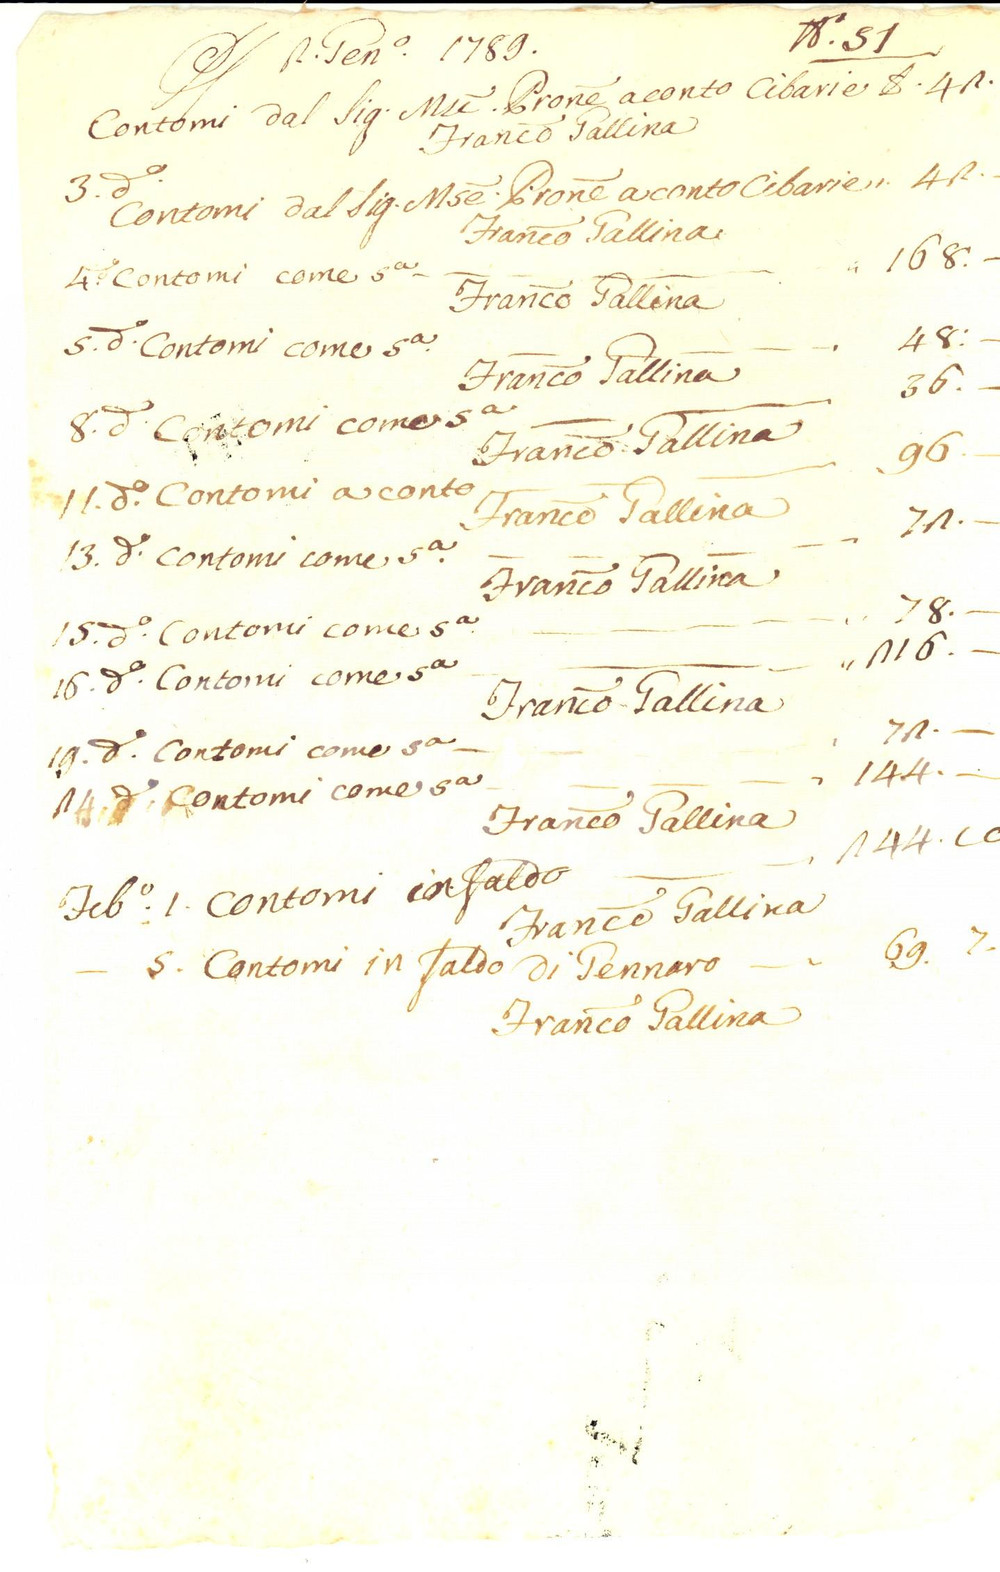 2. Genº. 1789. Nº. 51
Contomi dal Sig. Mse. Prone aconto Cibarie £. 42.
Franco Gallina
3. dº.
Contomi dal Sig. Mse. Prone aconto Cibarie „ 42. —
Franco Gallina
4º. Contomi come sª — „ 168. —
Franco Gallina
5. dº. Contomi come sª. 48: —
Franco Gallina
36. —
8. dº. Contomi come sª
Franco Gallina
96 —
11. dº. Contomi aconto
Franco Gallina
72. —
13. dº. Contomi come sª.
Franco Gallina
15. dº. Contomi come sª. „ 78. —
16. dº. Contomi come sª „ 216. —
Franco Gallina
19. dº. Contomi come sª — 72. —
24. dº. Contomi come sª 144. —
Franco Gallina
244. CC
Febº. 1. Contomi in saldo
Franco Gallina
— 5. Contomi in saldo di Gennaro — 69. 7.
Franco Gallina